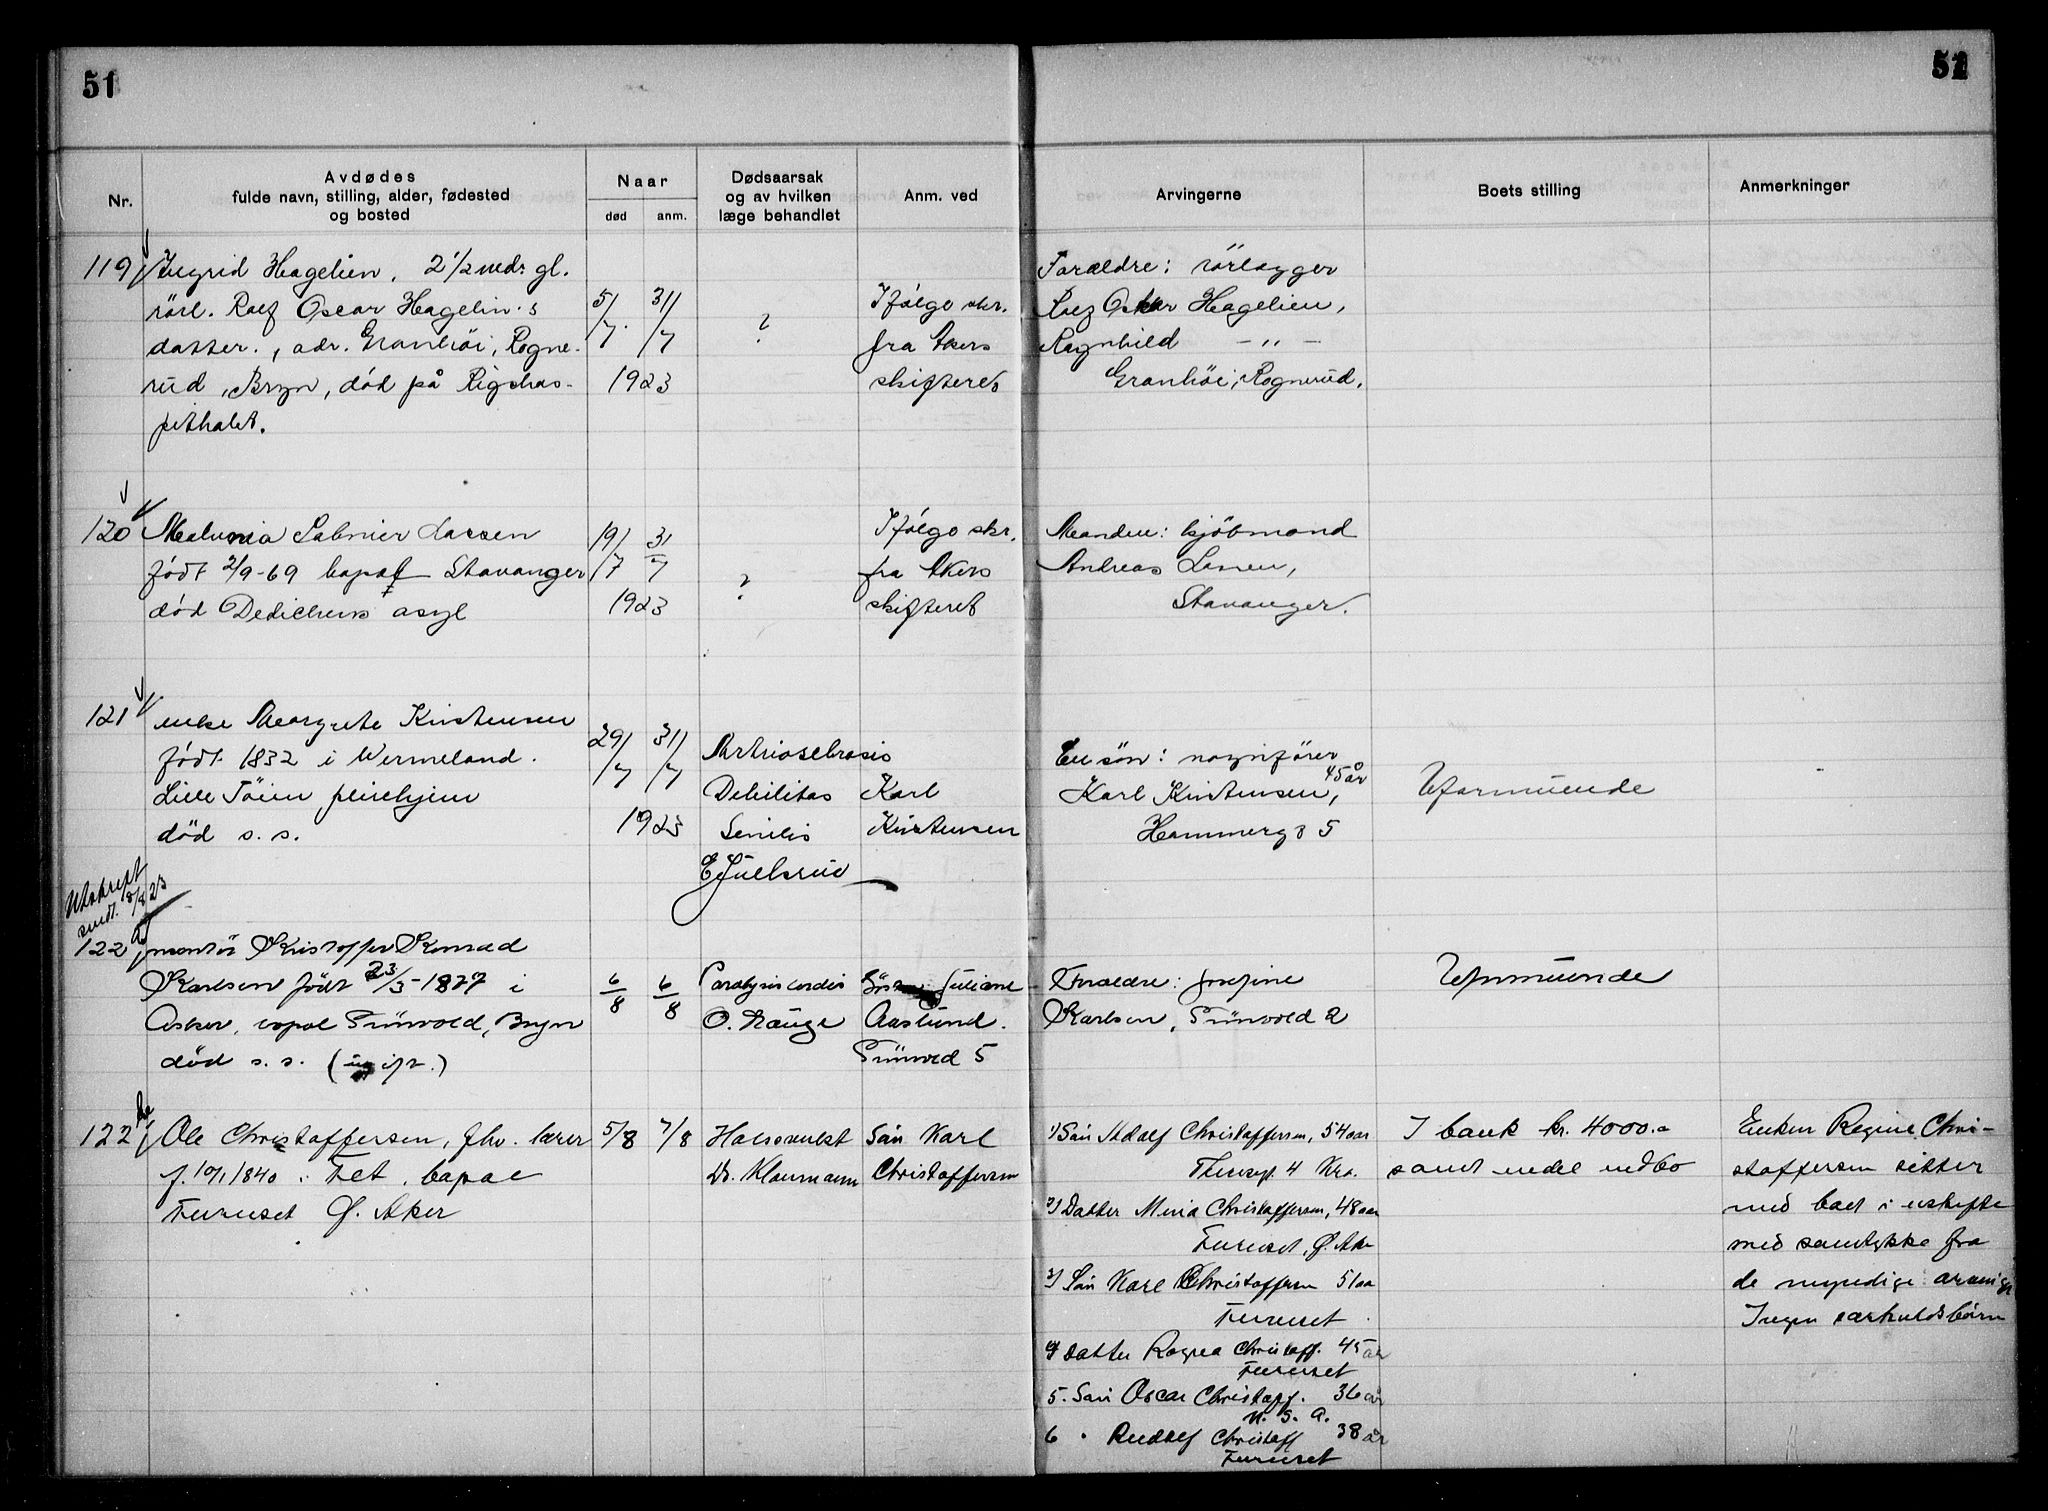 51
52
Nr.
Avdødes
fulde navn, stilling, alder, fødested
og bosted
Naar
død
anm.
Dødsaarsak
og av hvilken
læge behandlet
Anm. ved
Arvingerne
Boets stilling
Anmerkninger
119
Ingrid Hagelien, 2 1/2 mdr. gl.
rörl. Rolf Oscar Hagelin's
datter., adr. Granhöi, Rogne-
rud, Bryn, död på Rigshos-
pithalet.
5/7
31/7
1923
?
Ifölge skr.
fra Akers
skifteret
Forældre: rörlægger
Oskar Hagelien,
Ragnhild - " -
Granhöi, Rognerud.
120
Malunia Lassen
födt 2/9-69 bopæl Stavanger
död Dedichens asyl
19/7
31/7
1923
?
Ifölge skr.
fra Akers
skifteret
Manden: kjöbmand
Andreas Lassen,
Stavanger.
121
enke Margrete Kristensen
födt 1832 i Wermeland.
Lille Töien pleiehjem
död s. s.
29/7
31/7
1923
Debilitas
Senilis
Karl
Kristensen
En sön: vognförer
Karl Kristensen, 45 år
Hammergs 5
Uformuende
Utskript
sendt 18/8 23
122 a
montör Kristoffer Konrad
Karlsen födt 23/3-1877 i
Asker, bopæl Grünvold, Bryn
död s. s. (ugift.)
6/8
6/8
Paralysis cordis
O. Hauge
Söster Juliane
Aaslund.
Grünvold 5
Forældre: Josefine
Karlsen, Grünvold 2
Uformuende
122 b
Ole Christoffersen, fhv. lærer
f. 10/1 1840 i Fet, bopæl
Furuset Ö. Aker
5/8
7/8
Halsonvekst
Dr. Klaumann
Sön Karl
Christoffersen
1) Sön Adolf Christoffersen, 54 aar
Theresgt. 4 Kra.
2) Datter Mina Christoffersen, 48 aar
Furuset, Ö. Aker
3) Sön Karl Christoffersen 51 aar
Furuset
4) Datter Ragna Christoff. 45 år
Furuset
5. Sön Oscar Christoff. 36 år
U. S. A.
6 " Rudolf Christoff 38 år
Furuset
I bank kr. 4000.-
samt endel indbo
Enken Regine Chri-
stoffersen sitter
med boet i uskifte
med samtykke fra
de myndige arvinger
Ingen særkuldsbörn